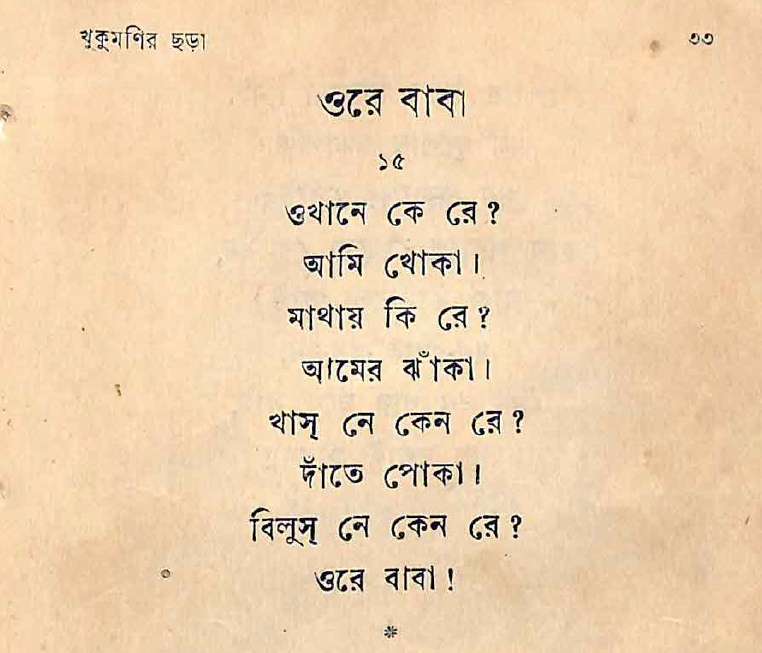 খুকুমণির ছড়া ৩৩
ওরে বাবা
১৫
ওখানে কে রে?
আমি খোকা।
মাথায় কি রে?
আমের ঝাঁকা।
খাস্ নে কেন রে?
দাঁতে পোকা।
বিলুস্ নে কেন রে?
ওরে বাবা!
*